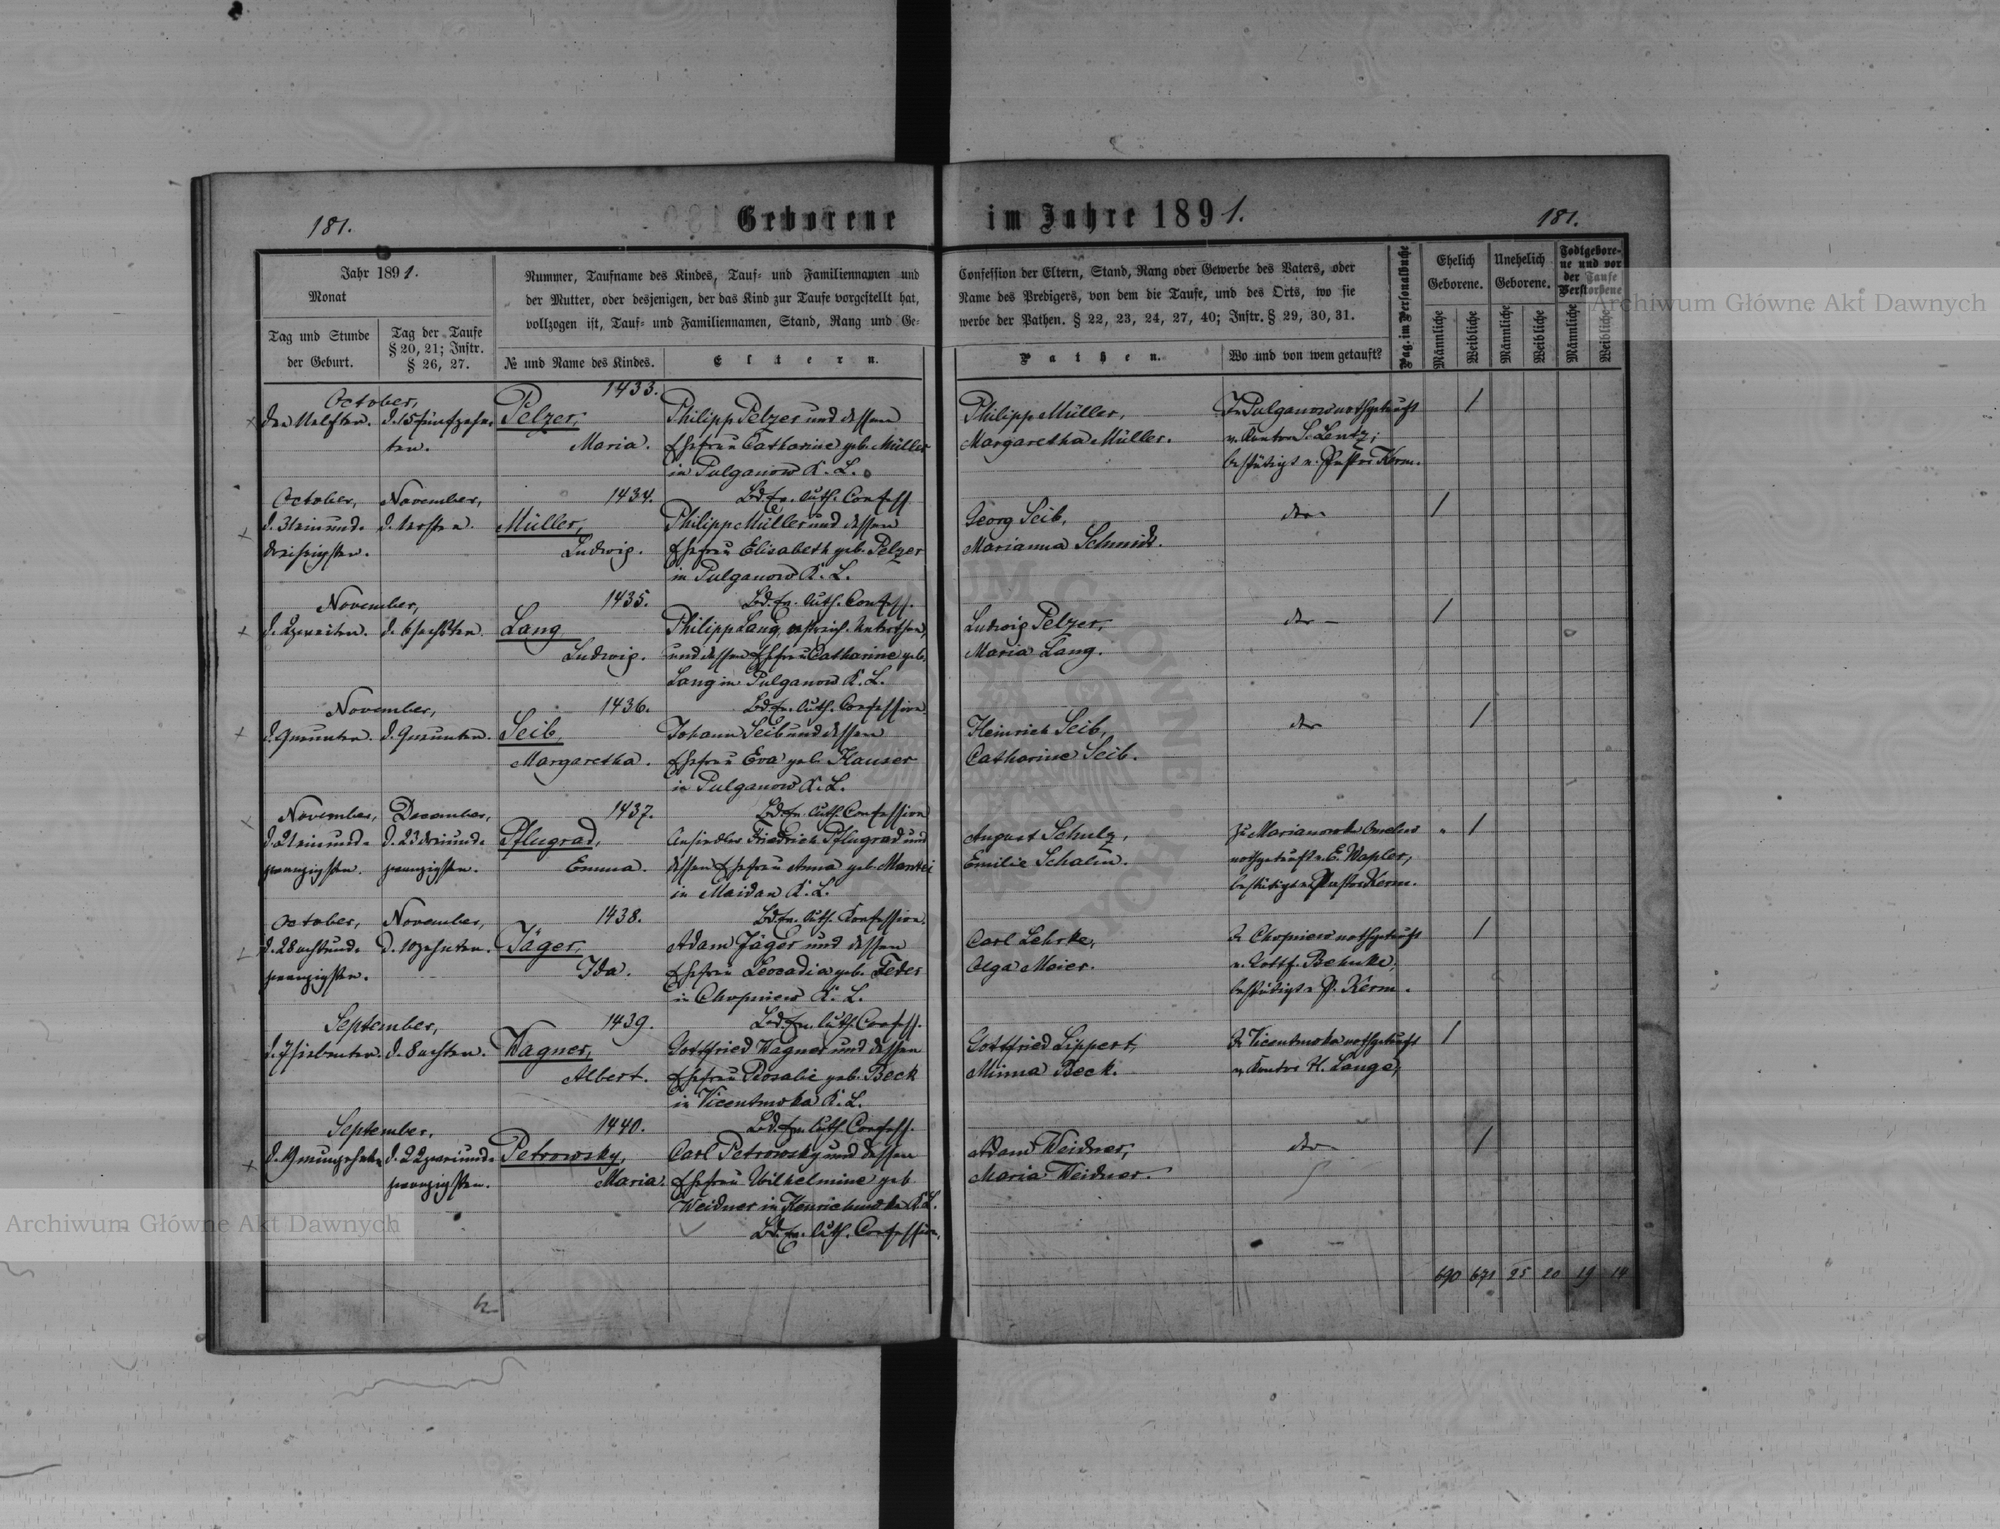 181.
Geborene im Jahre 1891.
181.
Jahr 1891.
Monat
Tag und Stunde
der Geburt.
Tag der Taufe
§ 20, 21; Instr.
§ 26, 27.
Nummer, Taufname des Kindes, Tauf- und Familiennamen und
der Mutter, oder desjenigen, der das Kind zur Taufe vorgestellt hat,
vollzogen ist, Tauf- und Familiennamen, Stand, Rang und Ge-
№ und Name des Kindes.
Eltern.
Confession der Eltern, Stand, Rang oder Gewerbe des Vaters, oder
Name des Predigers, von dem die Taufe, und des Orts, wo sie
werbe der Pathen. § 22, 23, 24, 27, 40; Instr. § 29, 30, 31.
Pathen.
Wo und von wem getauft?
Pag. im Personalbuche
Ehelich
Geborene.
Unehelich
Geborene.
Todtgebore-
ne und vor
der Taufe
Verstorbene
Männliche
Weibliche
Männliche
Weibliche
Männliche
Weibliche
October,
den Uelften. d. 15 fünfzehn-
ten.
1433.
Pelzer,
Maria.
Philipp Pelzer und dessen
Ehefrau Catharine geb. Müller
in Pulganow K. L.
Bd. ev. luth. Confess.
Philipp Müller,
Margaretha Müller.
In Pulganow nothgetauft
v. Kantor L. Lentz;
bestätigt v. Pastor Kerm.
1
October,
d. 31 einund-
dreißigsten.
November,
d. 1 ersten.
1434.
Müller,
Ludwig.
Philipp Müller und dessen
Ehefrau Elisabeth geb. Pelzer
in Pulganow K. L.
Bd. ev. luth. Confess.
Georg Seib,
Marianna Schmidt.
dto
1
November,
d. 2 zweiten. d. 6 sechsten.
1435.
Lang
Ludwig.
Philipp Lang, östreich. Unterthan,
und dessen Ehefrau Catharine geb.
Lang in Pulganow K. L.
Bd. ev. luth. Confession.
Ludwig Pelzer,
Maria Lang.
dto
1
November,
d. 9 neunten. d. 9 neunten.
1436.
Seib,
Margaretha.
Johann Seib und dessen
Ehefrau Eva geb. Hauser
in Pulganow K. L.
Bd. ev. luth. Confession
Heinrich Seib,
Catharine Seib.
dto
1
November,
d. 21 einund-
zwanzigsten.
December,
d. 23 dreiund-
zwanzigsten.
1437.
Pflugrad,
Emma.
Ansiedler Friedrich Pflugrad und
dessen Ehefrau Anna geb. Mantei
in Maidan K. L.
Bd. ev. luth. Konfession.
August Schulz,
Emilie Schalin.
Zu Marianowka
nothgetauft v. E. Wapler,
bestätigt v. Pastor Kerm.
1
October,
d. 28 achtund-
zwanzigsten.
November,
d. 10 zehnten.
1438.
Jäger,
Ida.
Adam Jäger und dessen
Ehefrau Leocadia geb. Feder
in Chopniew K. L.
Bd. ev. luth. Confess.
Carl Lehrke,
Olga Meier.
In Chopniew nothgetauft
v. Gottf. Behnke,
bestätigt v. P. Kerm.
1
September,
d. 7 siebenten. d. 8 achten.
1439.
Wagner,
Albert.
Gottfried Wagner und dessen
Ehefrau Rosalie geb. Beck
in Vicentowka K. L.
Bd. ev. luth. Confess.
Gottfried Lippert,
Minna Beck.
In Vicentowka nothgetauft
v. Kantor H. Lange,
1
September,
d. 19 neunzehnten d. 22 zweiund-
zwanzigsten.
1440.
Petrowsky,
Maria.
Carl Petrowsky und dessen
Ehefrau Wilhelmine geb.
Weidner in Henrichowka K. L.
Bd. ev. luth. Confession.
Adam Weidner,
Maria Weidner.
dto
1
690 671 25 20 19 14
Archiwum Główne Akt Dawnych
Archiwum Główne Akt Dawnych